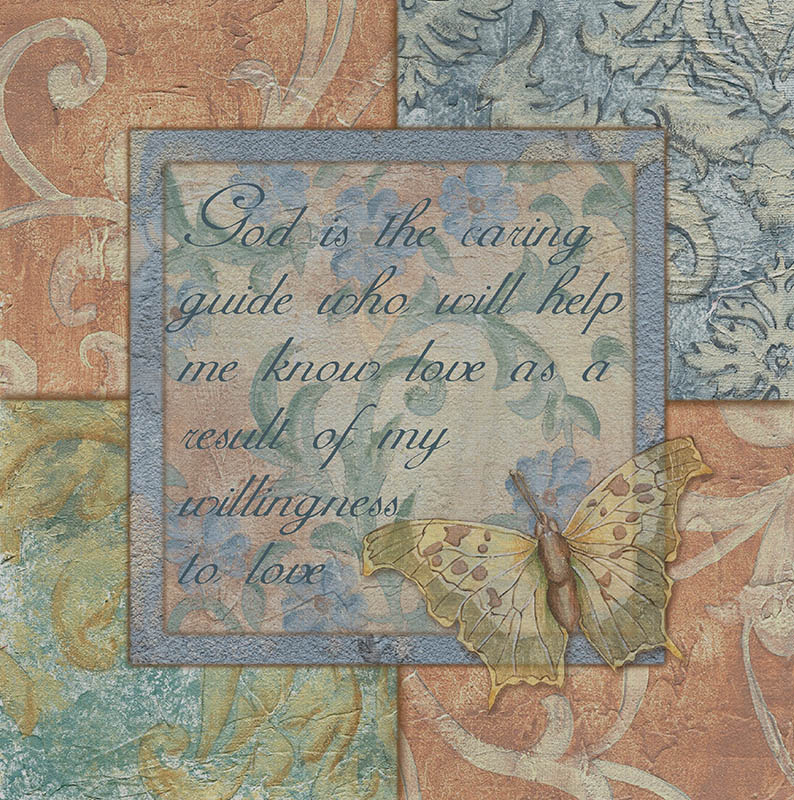 God is the caring
guide who will help
me know love as a
result of my
willingness
to love